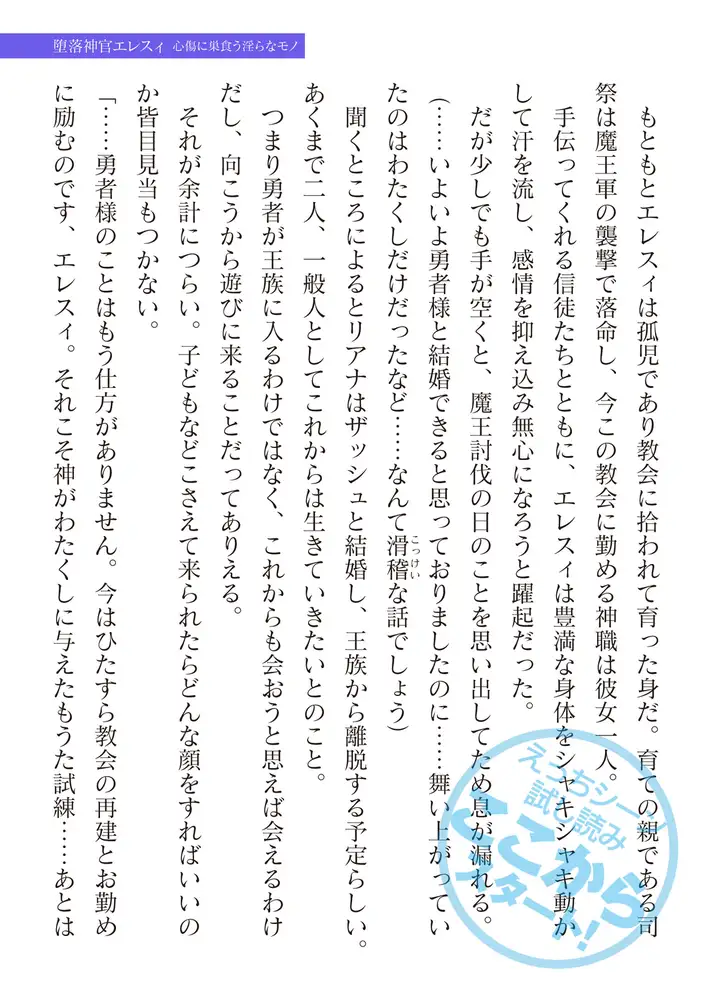 堕落神官エレスィ 心傷に巣食う淫らなモノ
もともとエレスィは孤児であり教会に拾われて育った身だ。育ての親である司
祭は魔王軍の襲撃で落命し、今この教会に勤める神職は彼女一人。
手伝ってくれる信徒たちとともに、エレスィは豊満な身体をシャキシャキ動か
して汗を流し、感情を抑え込み無心になろうと躍起だった。
だが少しでも手が空くと、魔王討伐の日のことを思い出してため息が漏れる。
(……いよいよ勇者様と結婚できると思っておりましたのに……舞い上がってい
たのはわたくしだけだったなど……なんて滑稽な話でしょう)
こっけい
聞くところによるとリアナはザッシュと結婚し、王族から離脱する予定らしい。
あくまで二人、一般人としてこれからは生きていきたいとのこと。
つまり勇者が王族に入るわけではなく、これからも会おうと思えば会えるわけ
だし、向こうから遊びに来ることだってありえる。
それが余計につらい。子どもなどこさえて来られたらどんな顔をすればいいの
か皆目見当もつかない。
「……勇者様のことはもう仕方がありません。今はひたすら教会の再建とお勤め
に励むのです、エレスィ。それこそ神がわたくしに与えたもうた試練……あとは
えっちシーン
試し読み
ここから
スタート!